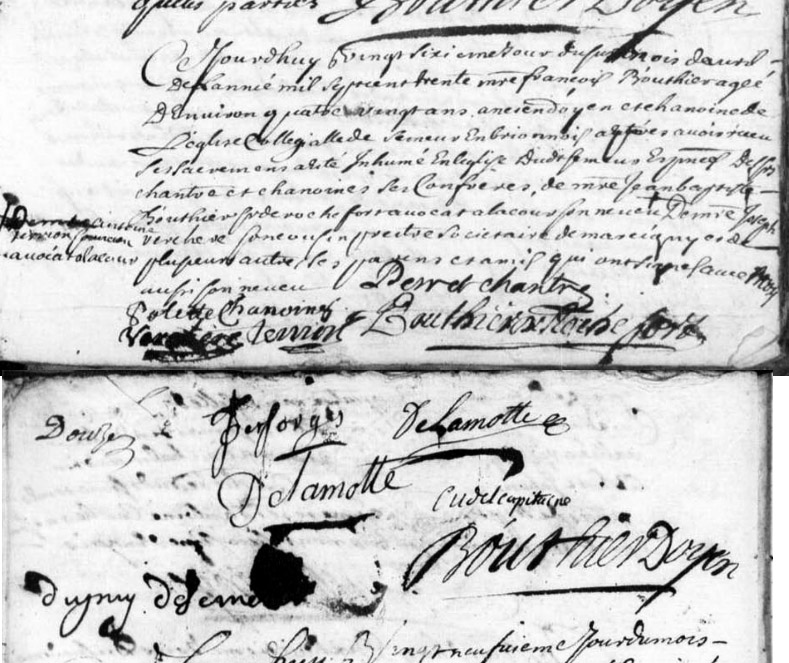 parties Bouthier Doyen
Jourdhuy vingt sixiemejour dupresent mois davril
de Lannié mil septcent trente mre francois Bouthier aagé
Denviron quatre vingt ans ancien doyen et chanoine de
Leglise Collegialle de semeur En brionnois apres avoir receu
ses sacremens a eté Inhumé En leglise dudit semeur En presence
chantre et chanoines ses Confreres, de mre Jean baptiste
Bouthier sr de rochefort avocat a la cour son neveu De mre Joseph
verchere son cousin prestre societaire de marcigny et de
plusieurs autres ses parens et amis qui ont signe
aussi son neveu Perret chantre
Polette Chanoine
Verchere Terrion Bouthier de Rochefort
De mre antoine
terrion
avocat a la cour
Desforges Delamotte
Delamotte
Cudel capitaine
Bouthier Doyen
dugny
vingt neufuieme Jour du mois